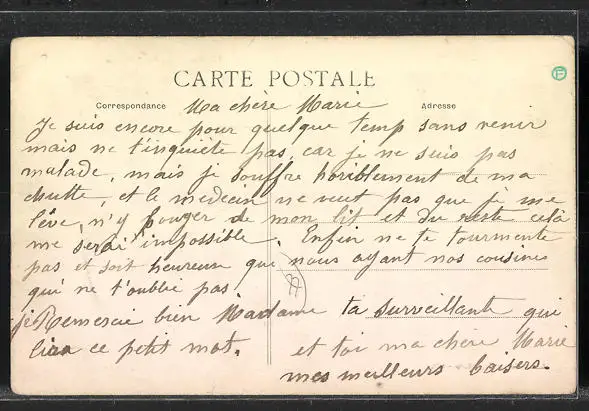 CARTE POSTALE
Correspondance
Adresse
Ma chère Marie
Je suis encore pour quelque temp sans venir
mais ne t'inquiète pas, car je ne suis pas
malade, mais je souffre horiblement de ma
chutte, et le medecin ne veut pas que je me
lève, n'y bouger de mon lit et du reste cela
me serai impossible. Enfin ne te tourmente
pas et soit heureuse que nous ayant nos cousines
qui ne t'oublie pas
je Remercie bien Madame ta surveillante qui
lira ce petit mot.
et toi ma chère Marie
mes meilleurs baisers.